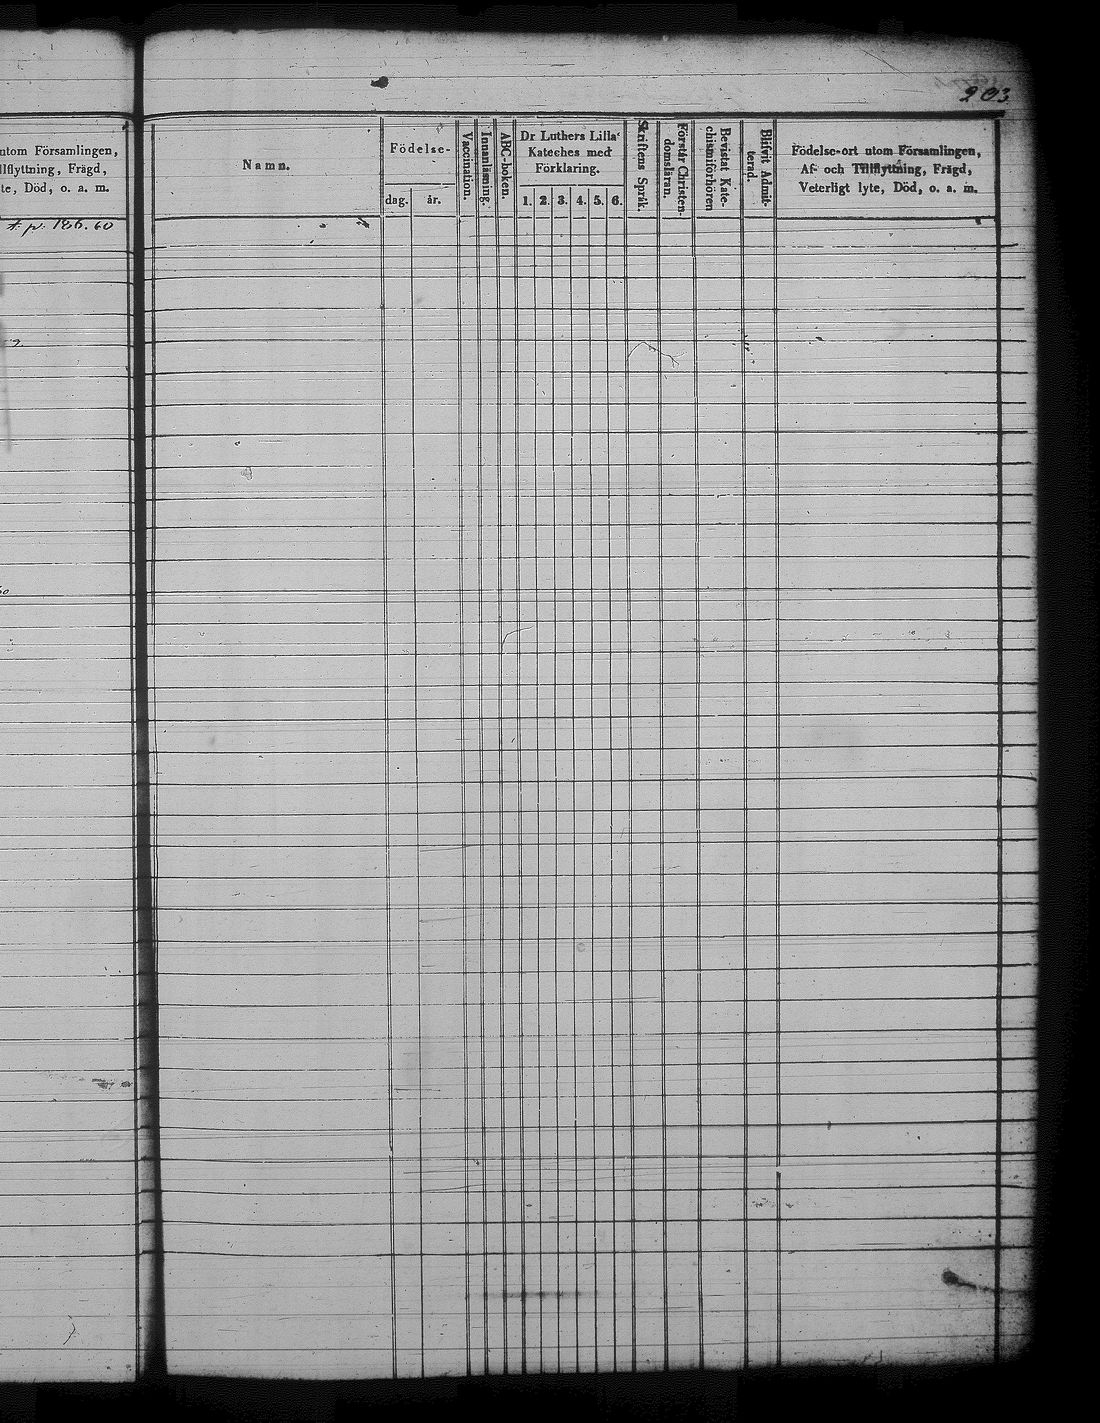 203
utom Församlingen,
llflyttning, Frägd,
te, Död, o. a. m.
p. 186. 60
Namn.
Födelse-
dag.
år.
Vaccination.
Innanläsning.
ABC-boken.
Dr Luthers Lilla
Kateches med
Förklaring.
1. 2. 3. 4. 5. 6.
Skriftens Språk.
Förstår Christen-
domsläran.
Bevistat Kate-
chismiförhören
Blifvit Admit-
terad.
Födelse-ort utom Församlingen,
Af- och Tillflyttning, Frägd,
Veterligt lyte, Död, o. a. m.